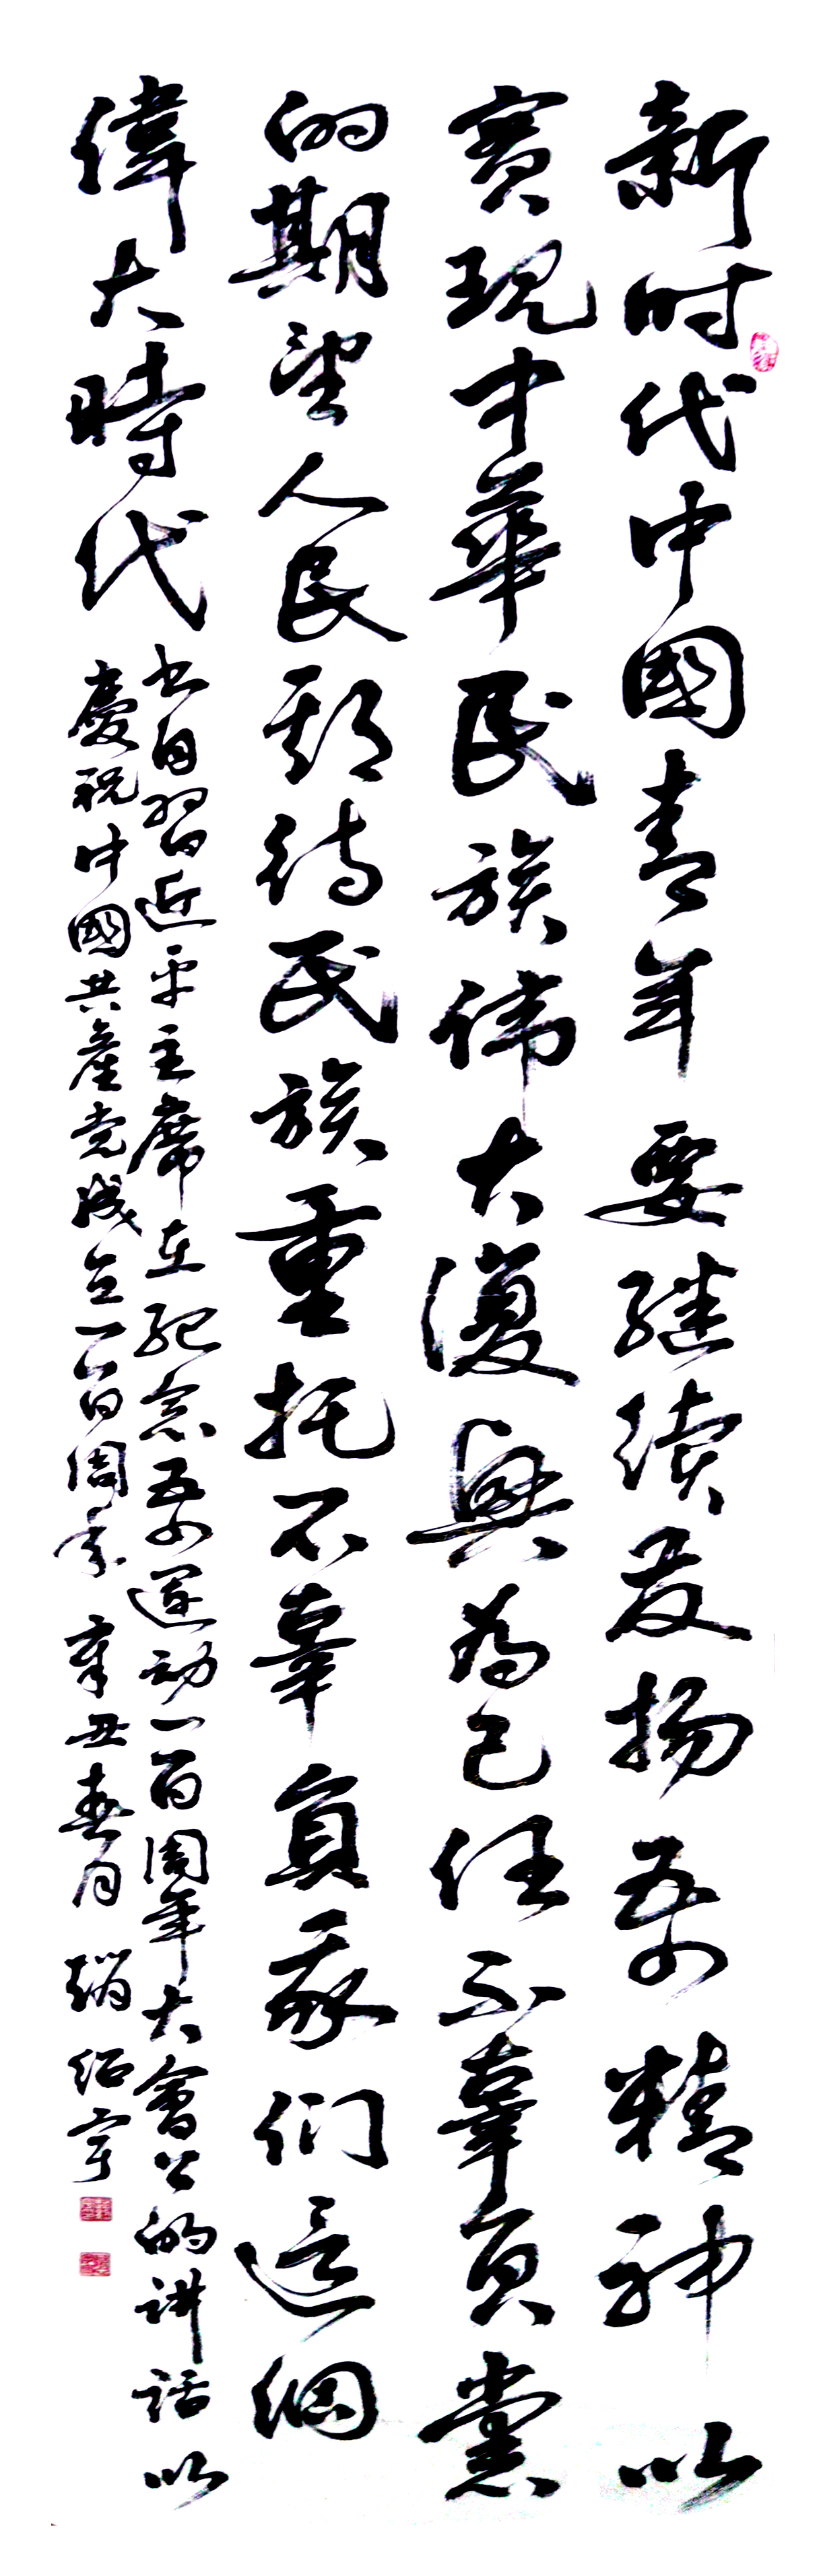 新时代中國青年要继续发扬五四精神以
實现中華民族伟大復興為己任不辜負黨
的期望人民期待民族重托不辜負我们這個
偉大時代
书自習近平主席在纪念五四運动一百周年大會上的讲话以
慶祝中國共產党成立一百周年辛丑春月赵绍宇